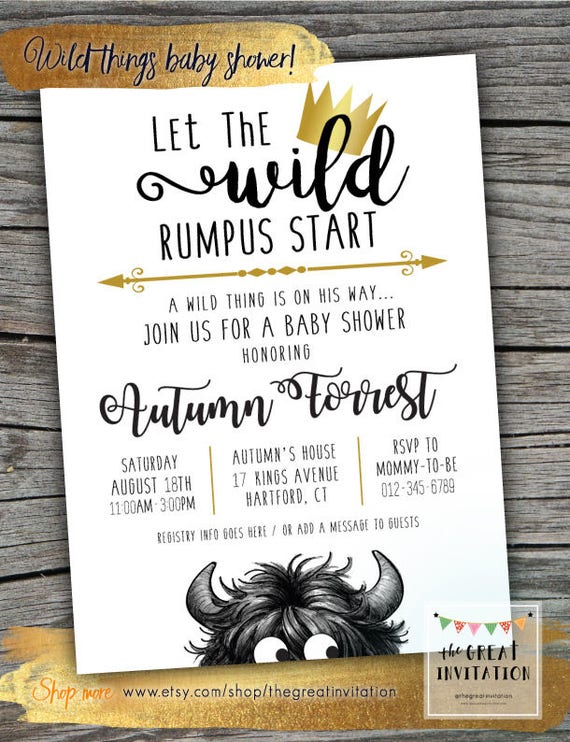 Wild things baby shower!
LET THE
wild
RUMPUS START
A WILD THING IS ON HIS WAY...
JOIN US FOR A BABY SHOWER
HONORING
Autumn Forrest
SATURDAY
AUGUST 18TH
11:00AM-3:00PM
AUTUMN'S HOUSE
17 KINGS AVENUE
HARTFORD, CT
RSVP TO
MOMMY-TO-BE
012-345-6789
REGISTRY INFO GOES HERE / OR ADD A MESSAGE TO GUESTS
the GREAT
INVITATION
@thegreatinvitation
Shop more www.etsy.com/shop/thegreatinvitation